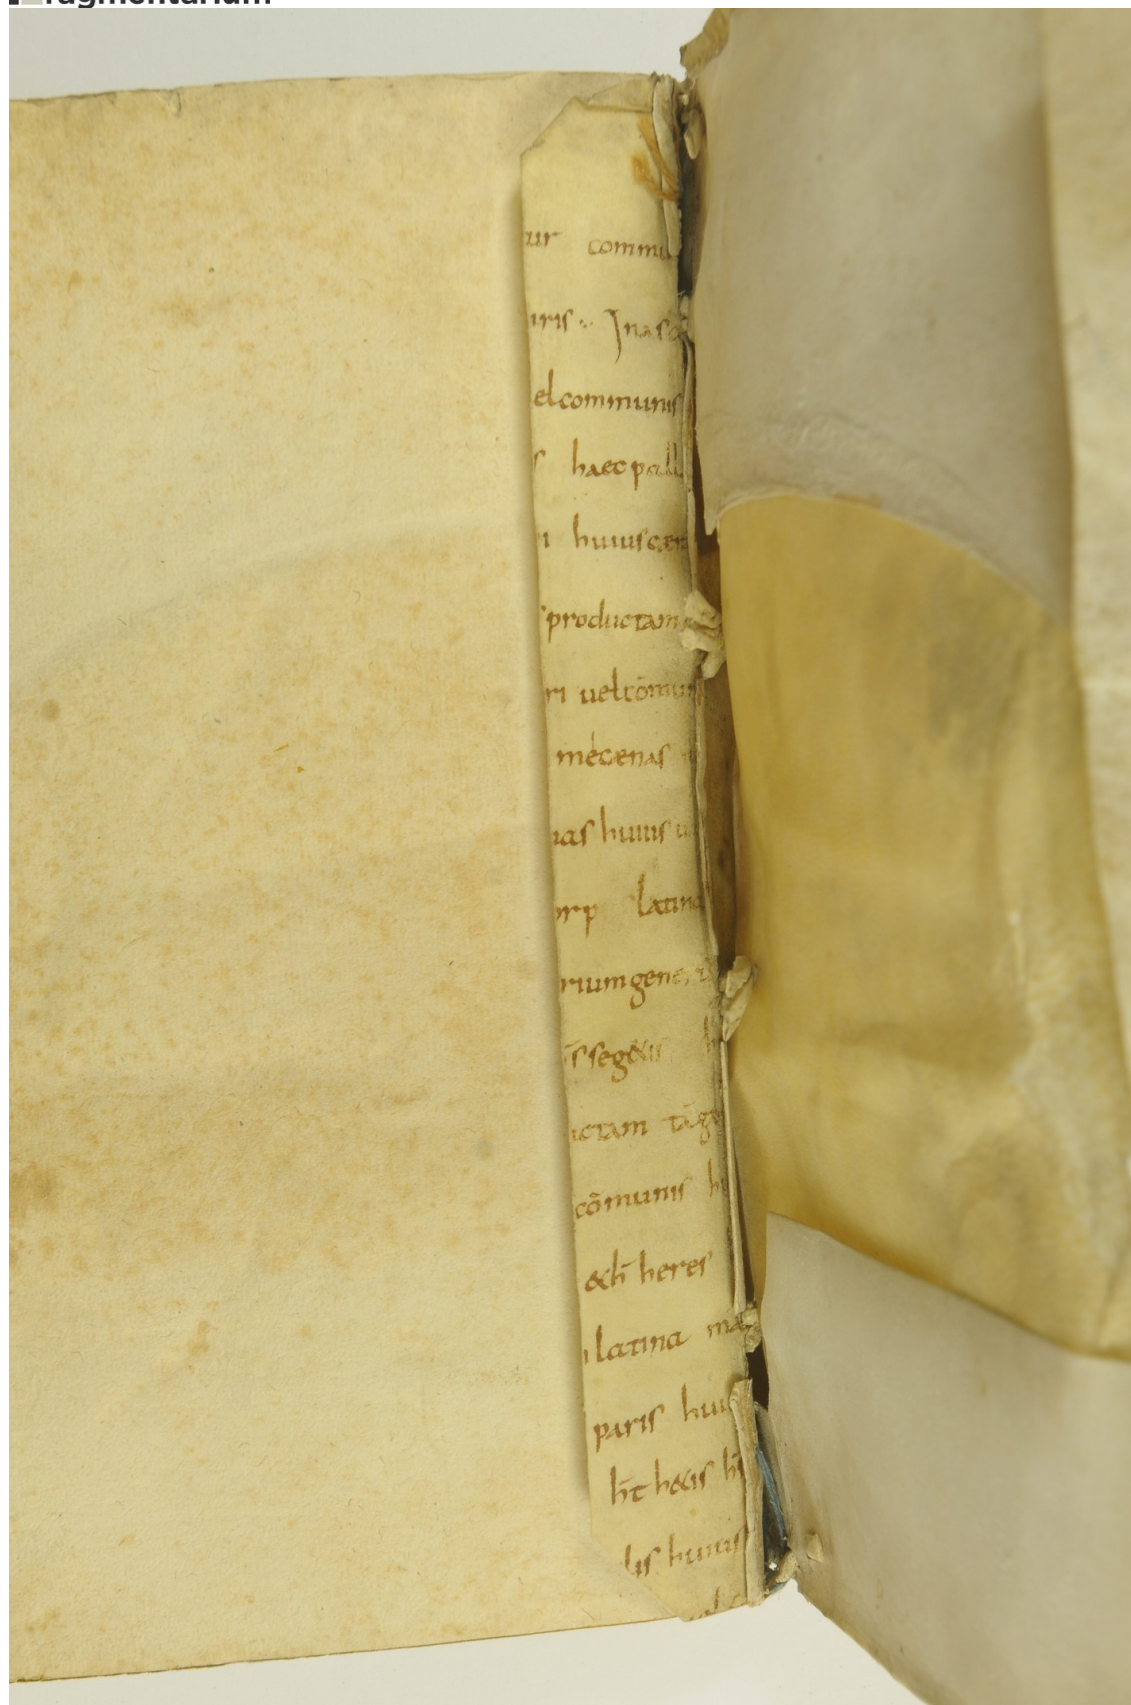 ragmentarium
ur commu
iris Inas
el communis
s haec pall
i huius cæn
productam
ri uel cōmun
mécænas
nas huius u
orp latina
rium gener
s̄ seg&is h
ictam tāg
cōmunis h
&h̄ heres
latina ma
paris huius
h̄t h&is h̄
lis huius
uel c